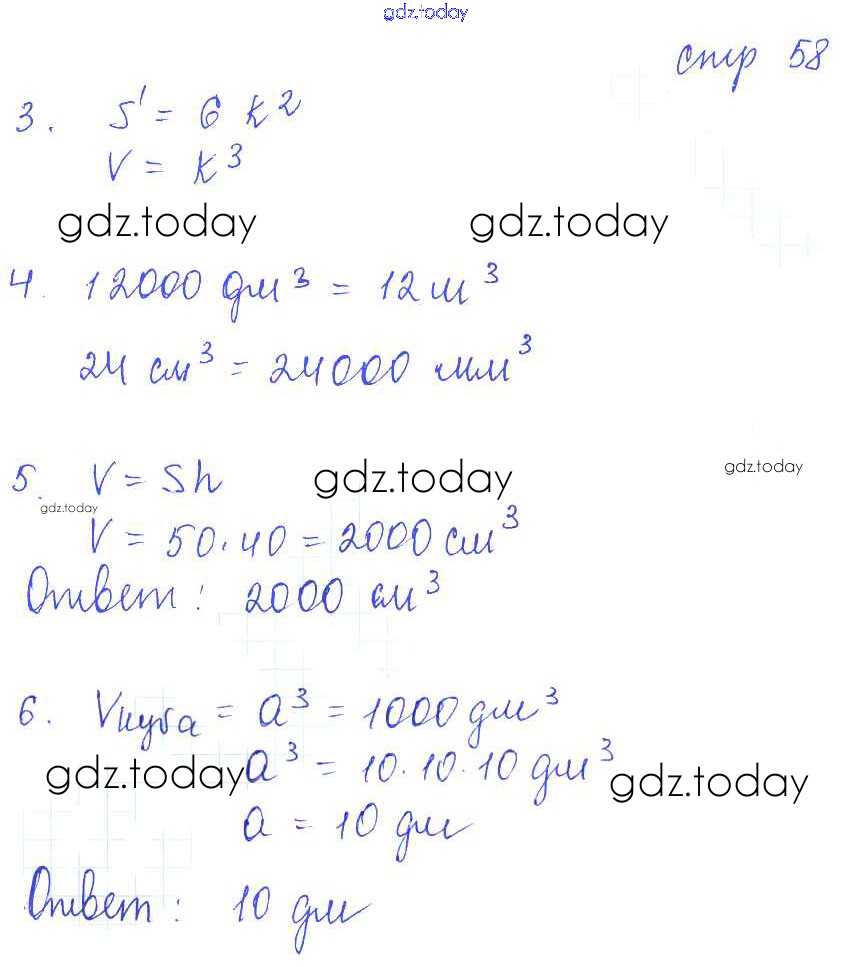 gdz.today
стр 58
3. S = 6 k²
V = k³
gdz.today gdz.today
4. 12000 дм³ = 12 м³
24 см³ = 24000 мм³
5. V = Sh gdz.today gdz.today
gdz.today
V = 50 · 40 = 2000 см³
Ответ: 2000 см³
6. Vкуба = a³ = 1000 дм³
gdz.today a³ = 10 · 10 · 10 дм³ gdz.today
a = 10 дм
Ответ: 10 дм